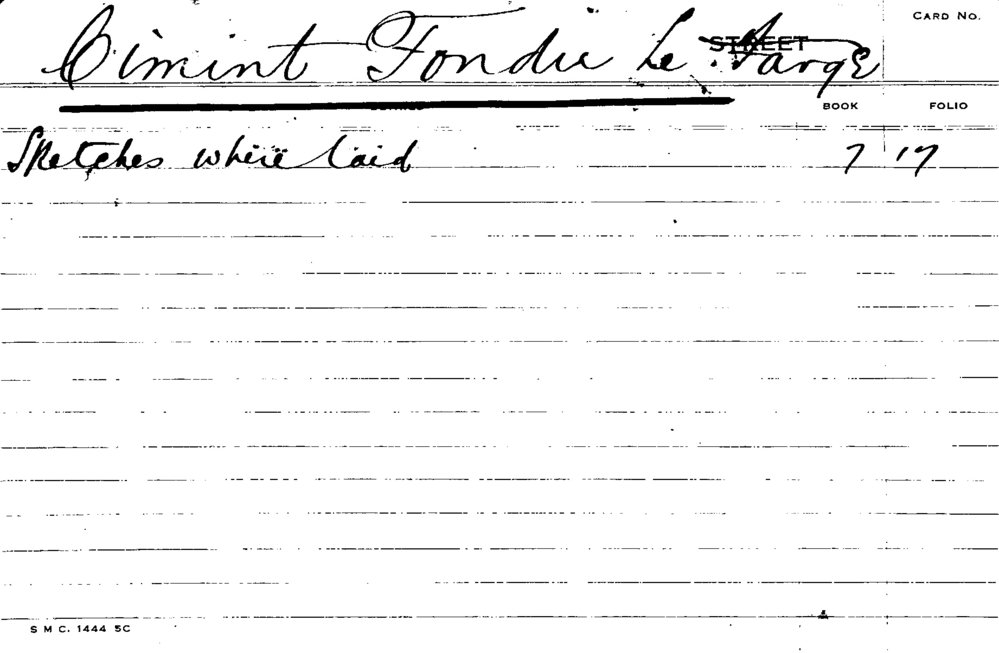 CARD NO.
STREET
Ciment Fondu Le Farge
BOOK FOLIO
Sketches where laid 7 17
S M C. 1444 5C